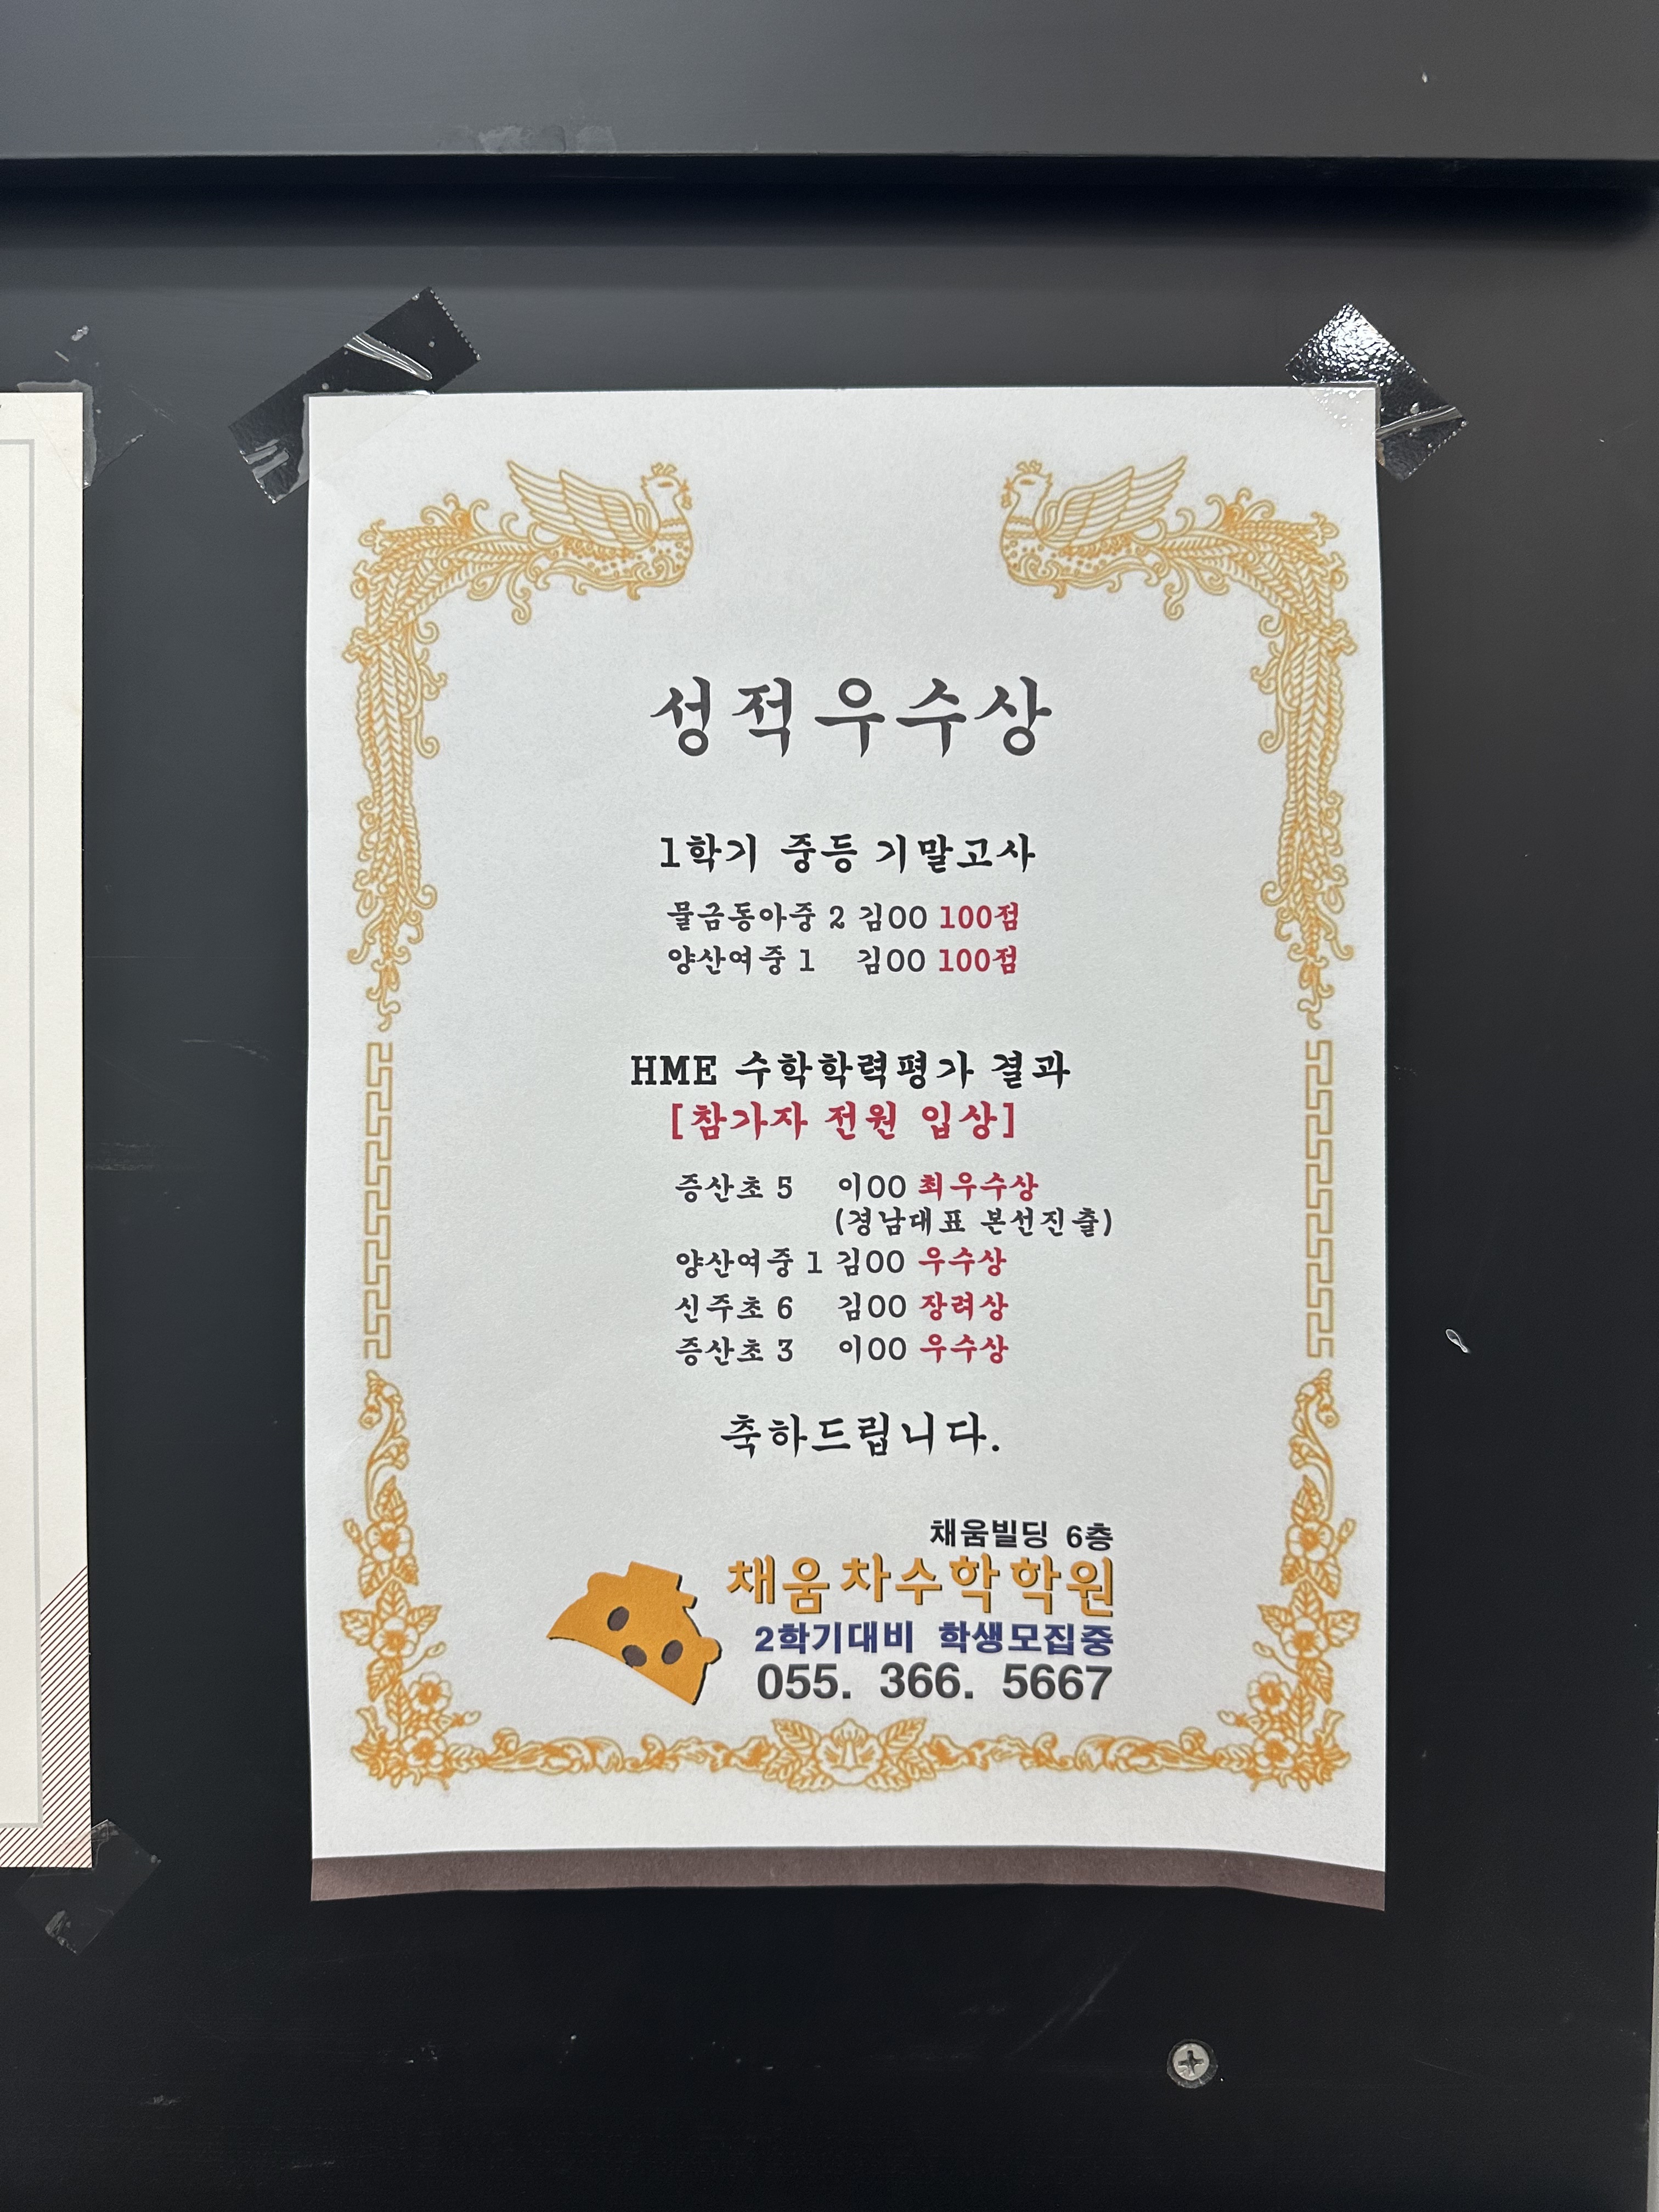 성적우수상
1학기 중등 기말고사
물금동아중 2 김OO 100점
양산여중 1 김OO 100점
HME 수학학력평가 결과
[참가자 전원 입상]
증산초 5 이OO 최우수상
(경남대표 본선진출)
양산여중 1 김OO 우수상
신주초 6 김OO 장려상
증산초 3 이OO 우수상
축하드립니다.
채움빌딩 6층
채움차수학학원
2학기대비 학생모집중
055. 366. 5667